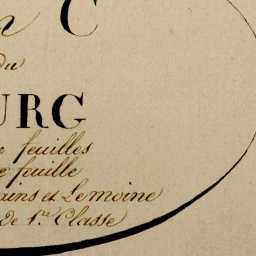 n C
du
URG
feuilles
feuille
ains et Lemoine
De 1re Classe